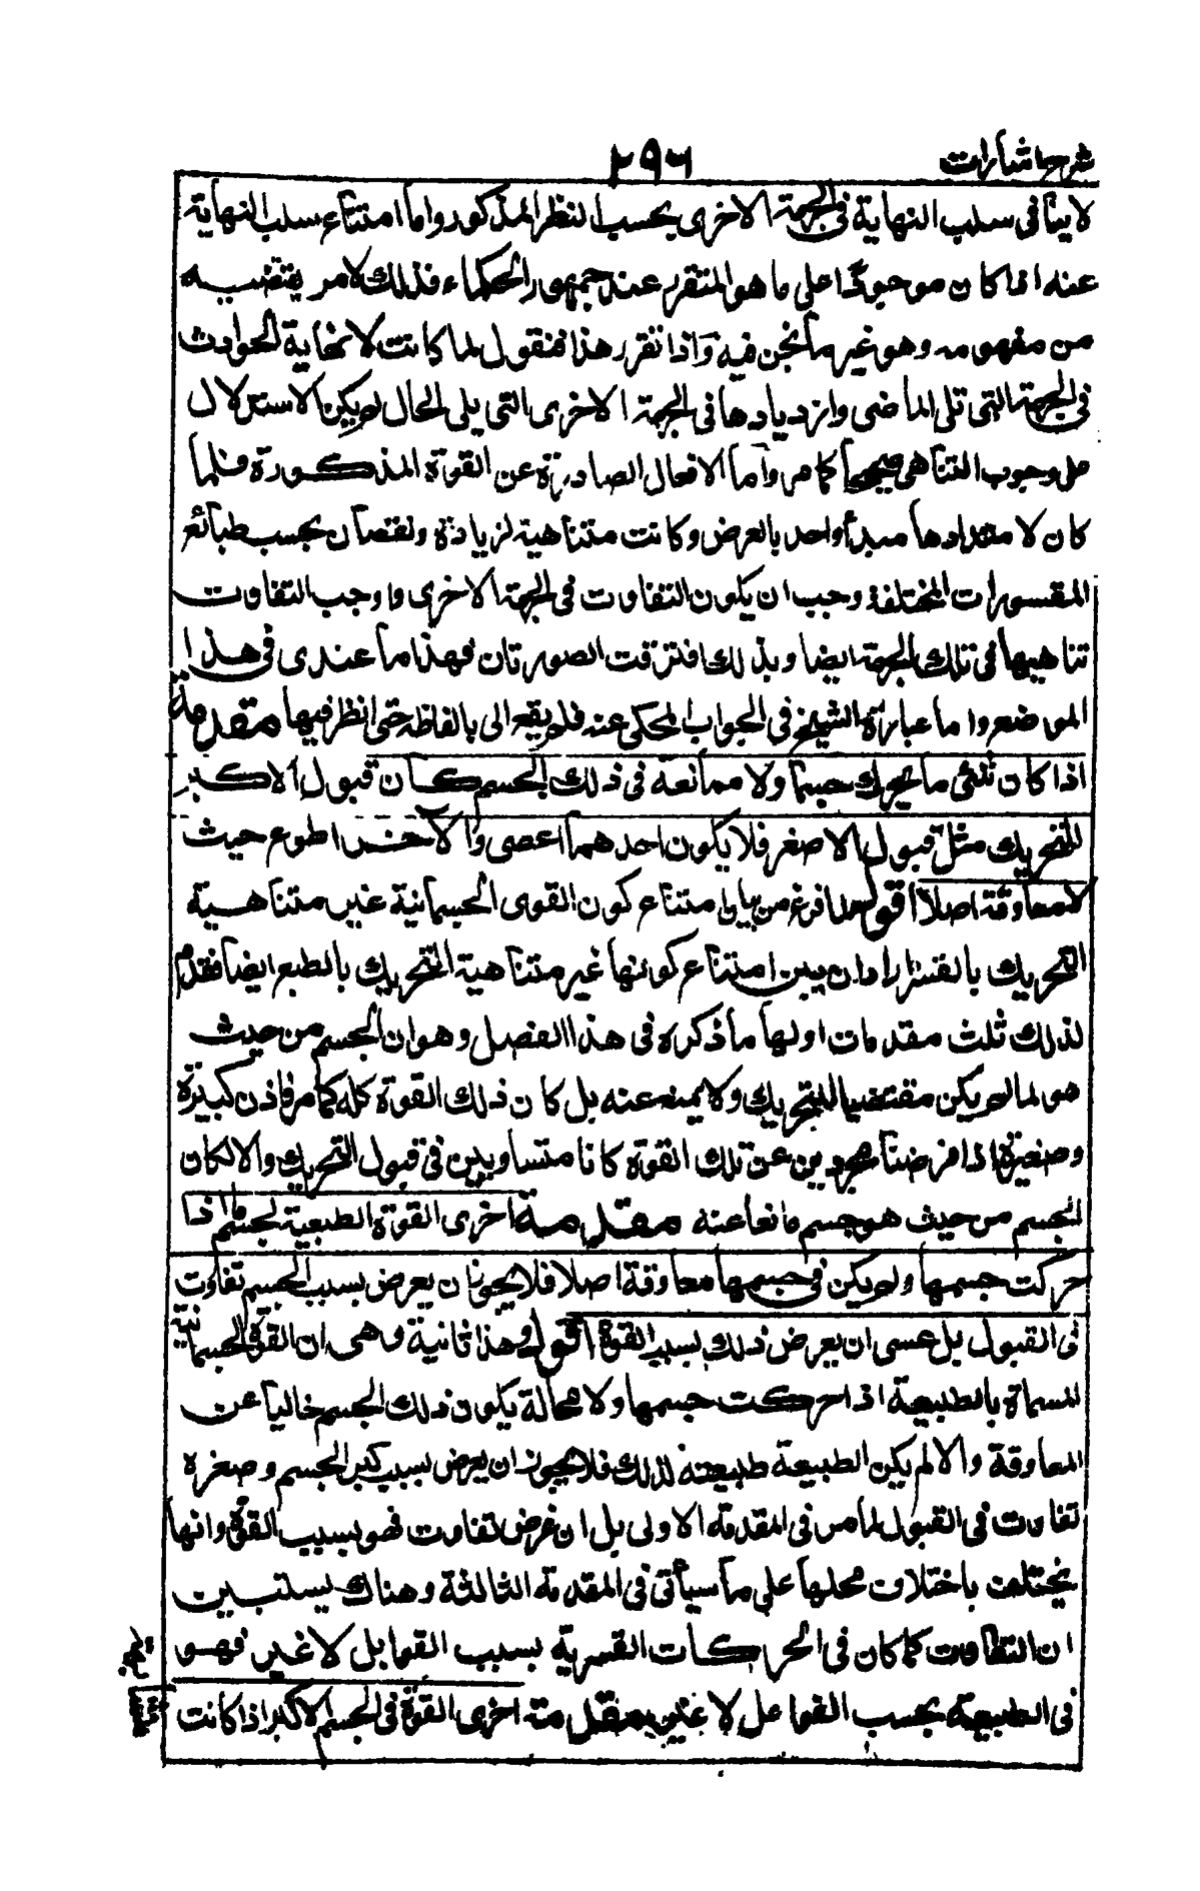 شرح اشارات
٢٩٦
لا ينافى سلب النهاية فى الجهة الاخرى بحسب النظر المذكور واما امتناع سلب النهاية
عنه اذا كان موجودا على ما هو المتقرر عند جمهور الحكماء فذلك لامر يقتضيه
من مفهومه وهو غير ما نحن فيه واذا تقرر هذا فنقول لما كانت لا نهاية الحوادث
فى الجهة التى تلى الماضى وازديادها فى الجهة الاخرى التى يلى الحال لم يكن الاستدلال
على وجوب التناهى صحيحا كما مر واما الافعال الصادرة عن القوة المذكورة فلما
كان لامتدادها مبدأ واحد بالعرض وكانت متناهية لزيادة ونقصان بحسب طبائع
المقسورات المختلفة وجب ان يكون التفاوت فى الجهة الاخرى واوجب التفاوت
تناهيها فى تلك الجهة ايضا وبذلك افترقت الصورتان فهذا ما عندى فى هذا
الموضع واما عبارة الشيخ فى الجواب المحكى عنه فلم يقع الى بالفاظه حتى انظر فيها مقدمة
اذا كان شئ ما يحرك جسما ولا ممانعة فى ذلك الجسم كان قبول الاكبر
للتحريك مثل قبول الاصغر فلا يكون احدهما اعصى والآخر اطوع حيث
لا معاوقة اصلا اقول لما فرغ من بيان امتناع كون القوى الجسمانية غير متناهية
التحريك بالقسر اراد ان يبين امتناع كونها غير متناهية التحريك بالطبع ايضا فقدم
لذلك ثلث مقدمات اولها ما ذكره فى هذا الفصل وهو ان الجسم من حيث
هو لما لم يكن مقتضيا للتحريك ولا يمنع عنه بل كان ذلك القوة كله كما مر فاذن كبيرة
وصغيره اذا فرضنا مجردين عن تلك القوة كانا متساويين فى قبول التحريك والا لكان
الجسم من حيث هو جسم مانعا عنه مقدمة اخرى القوة الطبعية لجسم ما اذا
حركت جسمها ولم يكن فى جسمها معاوقة اصلا فلا يجوز ان يعرض بسبب الجسم تفاوت
فى القبول بل عسى ان يعرض ذلك بسبب القوة اقول وهذا ثانية وهى ان القوة الجسمانية
المسماة بالطبيعة اذا حركت جسمها ولا محالة يكون ذلك الجسم خاليا عن
المعاوقة والا لم يكن الطبيعة طبيعته لذلك فلا يجوز ان يعرض بسبب كبر الجسم وصغره
تفاوت فى القبول لما مر فى المقدمة الاولى بل ان عرض تفاوت فهو بسبب القوة وانها
يختلف باختلاف محلها على ما سيأتى فى المقدمة الثالثة وهناك يستبين
ان التفاوت كما كان فى الحركات القسرية بسبب القوابل لا غير فهو
فى الطبيعة بحسب الفواعل لا غير مقدمة اخرى القوة فى الجسم الاكبر اذا كانت